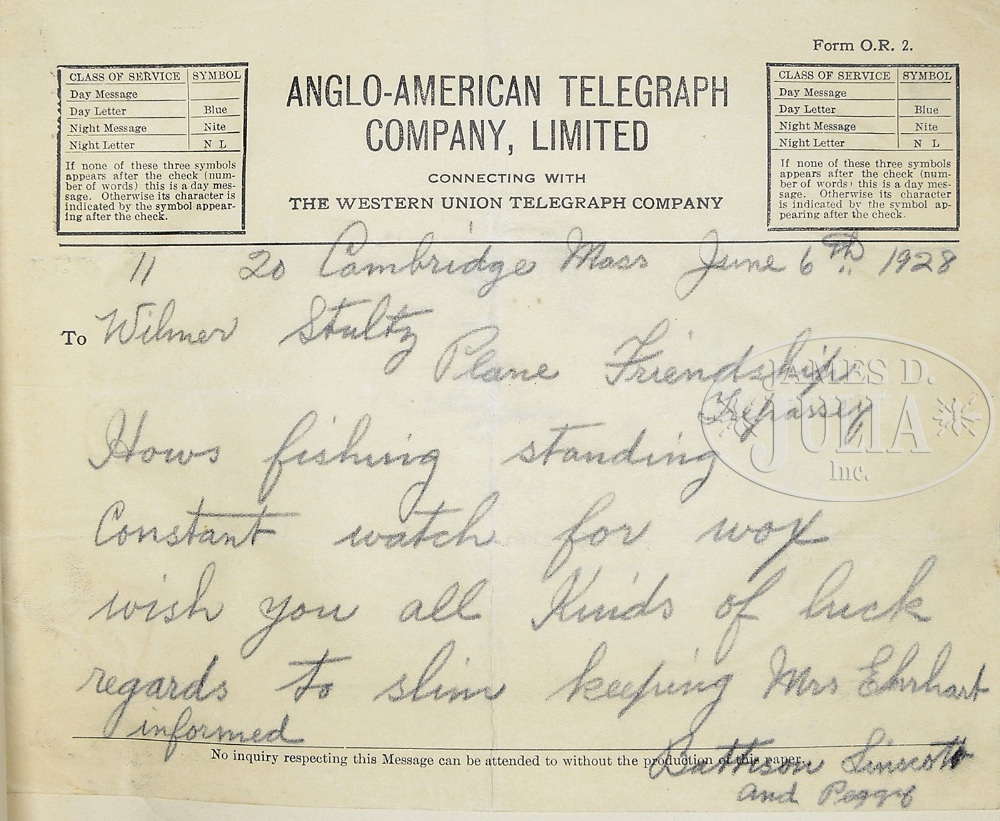 Form O.R. 2.
CLASS OF SERVICE SYMBOL
Day Message
Day Letter Blue
Night Message Nite
Night Letter N L
If none of these three symbols
appears after the check (num-
ber of words) this is a day mes-
sage. Otherwise its character is
indicated by the symbol appear-
ing after the check.
ANGLO-AMERICAN TELEGRAPH
COMPANY, LIMITED
CONNECTING WITH
THE WESTERN UNION TELEGRAPH COMPANY
CLASS OF SERVICE SYMBOL
Day Message
Day Letter Blue
Night Message Nite
Night Letter N L
If none of these three symbols
appears after the check (num-
ber of words) this is a day mes-
sage. Otherwise its character is
indicated by the symbol ap-
pearing after the check.
11 20 Cambridge Mass June 6th 1928
To Wilmer Stultz
Plane Friendship
Trepassey
JAMES D.
JULIA
Inc.
Hows fishing standing
Constant watch for wox
wish you all Kinds of luck
regards to slim keeping Mrs Ehrhart
informed
No inquiry respecting this Message can be attended to without the production of this paper.
Battison
and Peggy